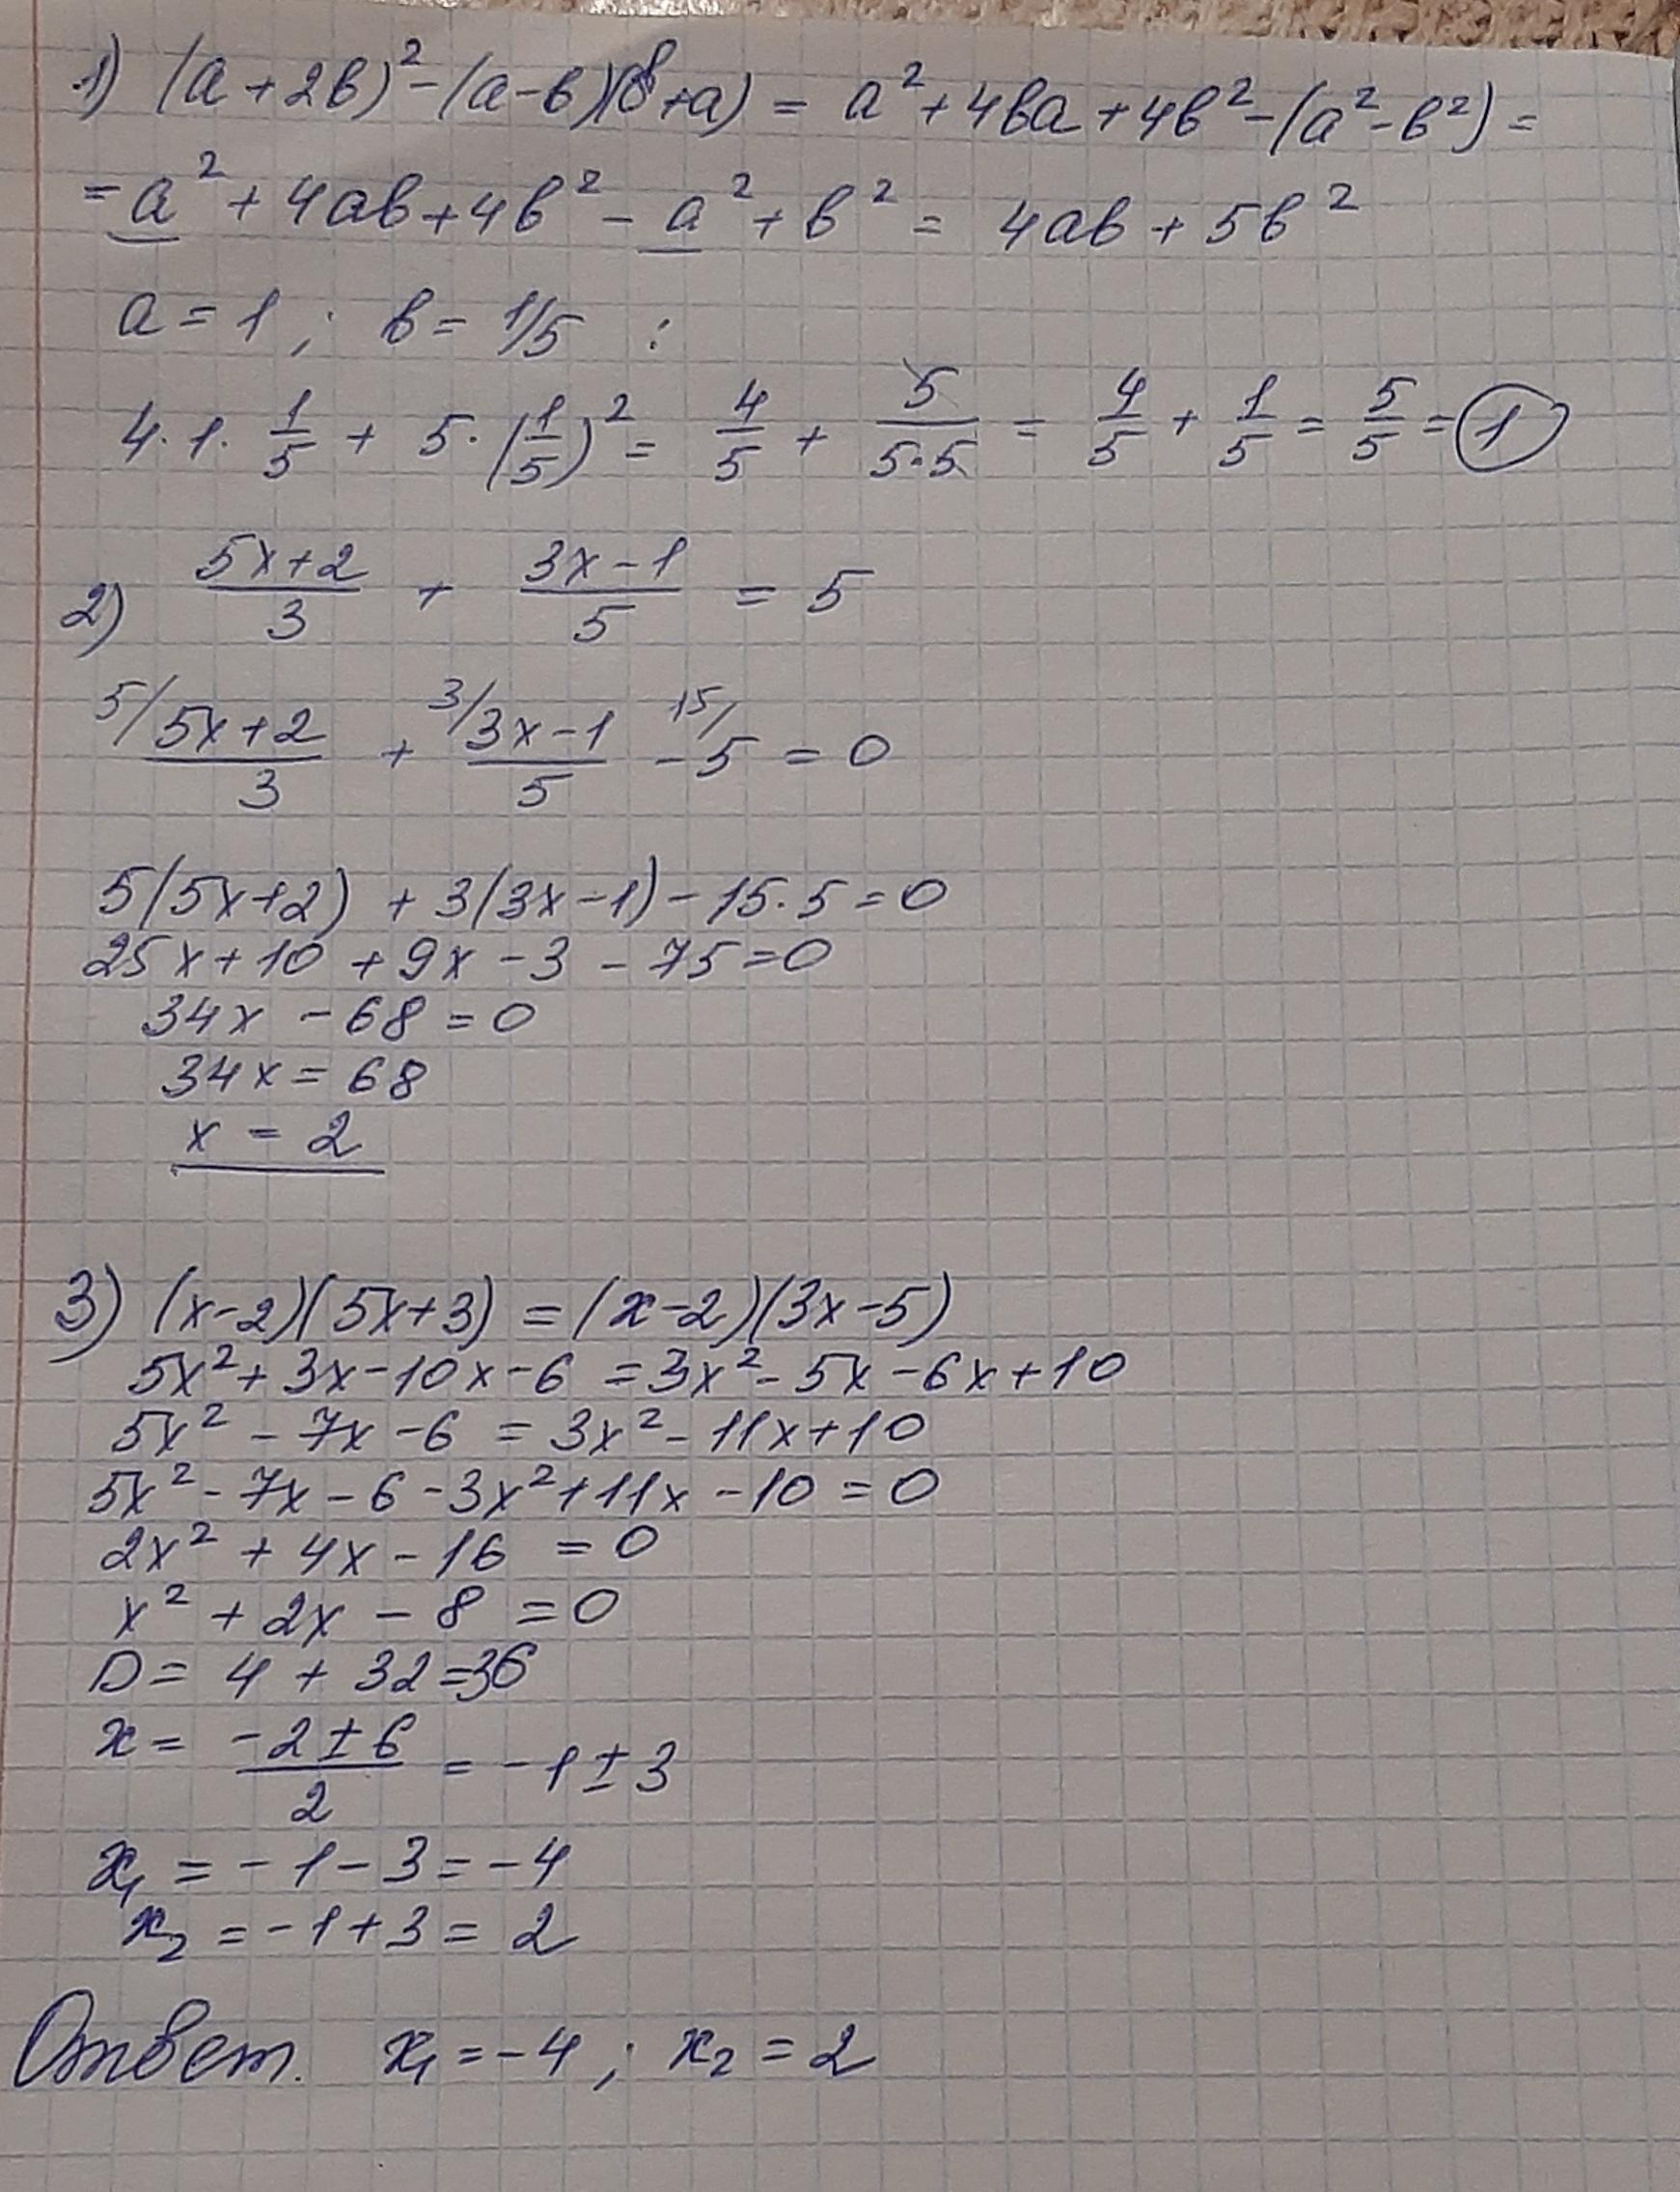 1) (a+2b)² - (a-b)(b+a) = a² + 4ba + 4b² - (a² - b²) =
= a² + 4ab + 4b² - a² + b² = 4ab + 5b²
a = 1 ; b = 1/5 :
4·1·1/5 + 5·(1/5)² = 4/5 + 5/(5·5) = 4/5 + 1/5 = 5/5 = 1
2) (5x+2)/3 + (3x-1)/5 = 5
5/ (5x+2)/3 + 3/ (3x-1)/5 - 15/ 5 = 0
5(5x+2) + 3(3x-1) - 15·5 = 0
25x + 10 + 9x - 3 - 75 = 0
34x - 68 = 0
34x = 68
x = 2
3) (x-2)(5x+3) = (x-2)(3x-5)
5x² + 3x - 10x - 6 = 3x² - 5x - 6x + 10
5x² - 7x - 6 = 3x² - 11x + 10
5x² - 7x - 6 - 3x² + 11x - 10 = 0
2x² + 4x - 16 = 0
x² + 2x - 8 = 0
D = 4 + 32 = 36
x = (-2 ± 6)/2 = -1 ± 3
x₁ = -1 - 3 = -4
x₂ = -1 + 3 = 2
Ответ. x₁ = -4 ; x₂ = 2